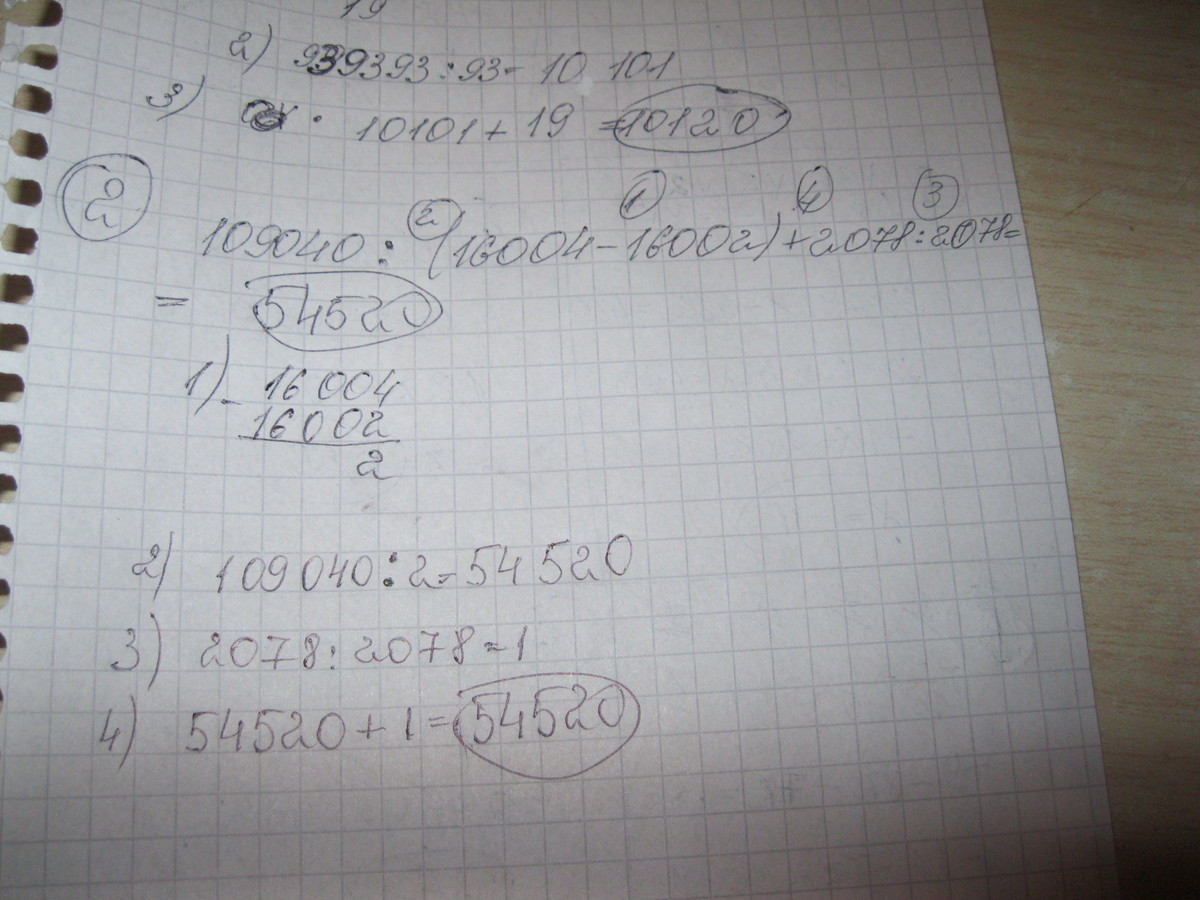 19
2) 939393:93= 10 101
3) · 10101 + 19 =10120
2
2 1 4 3
109040 : (16004-16002)+2078:2078=
= 54520
1) - 16004
16002
2
2) 109040:2=54520
3) 2078:2078=1
4) 54520+1=54520